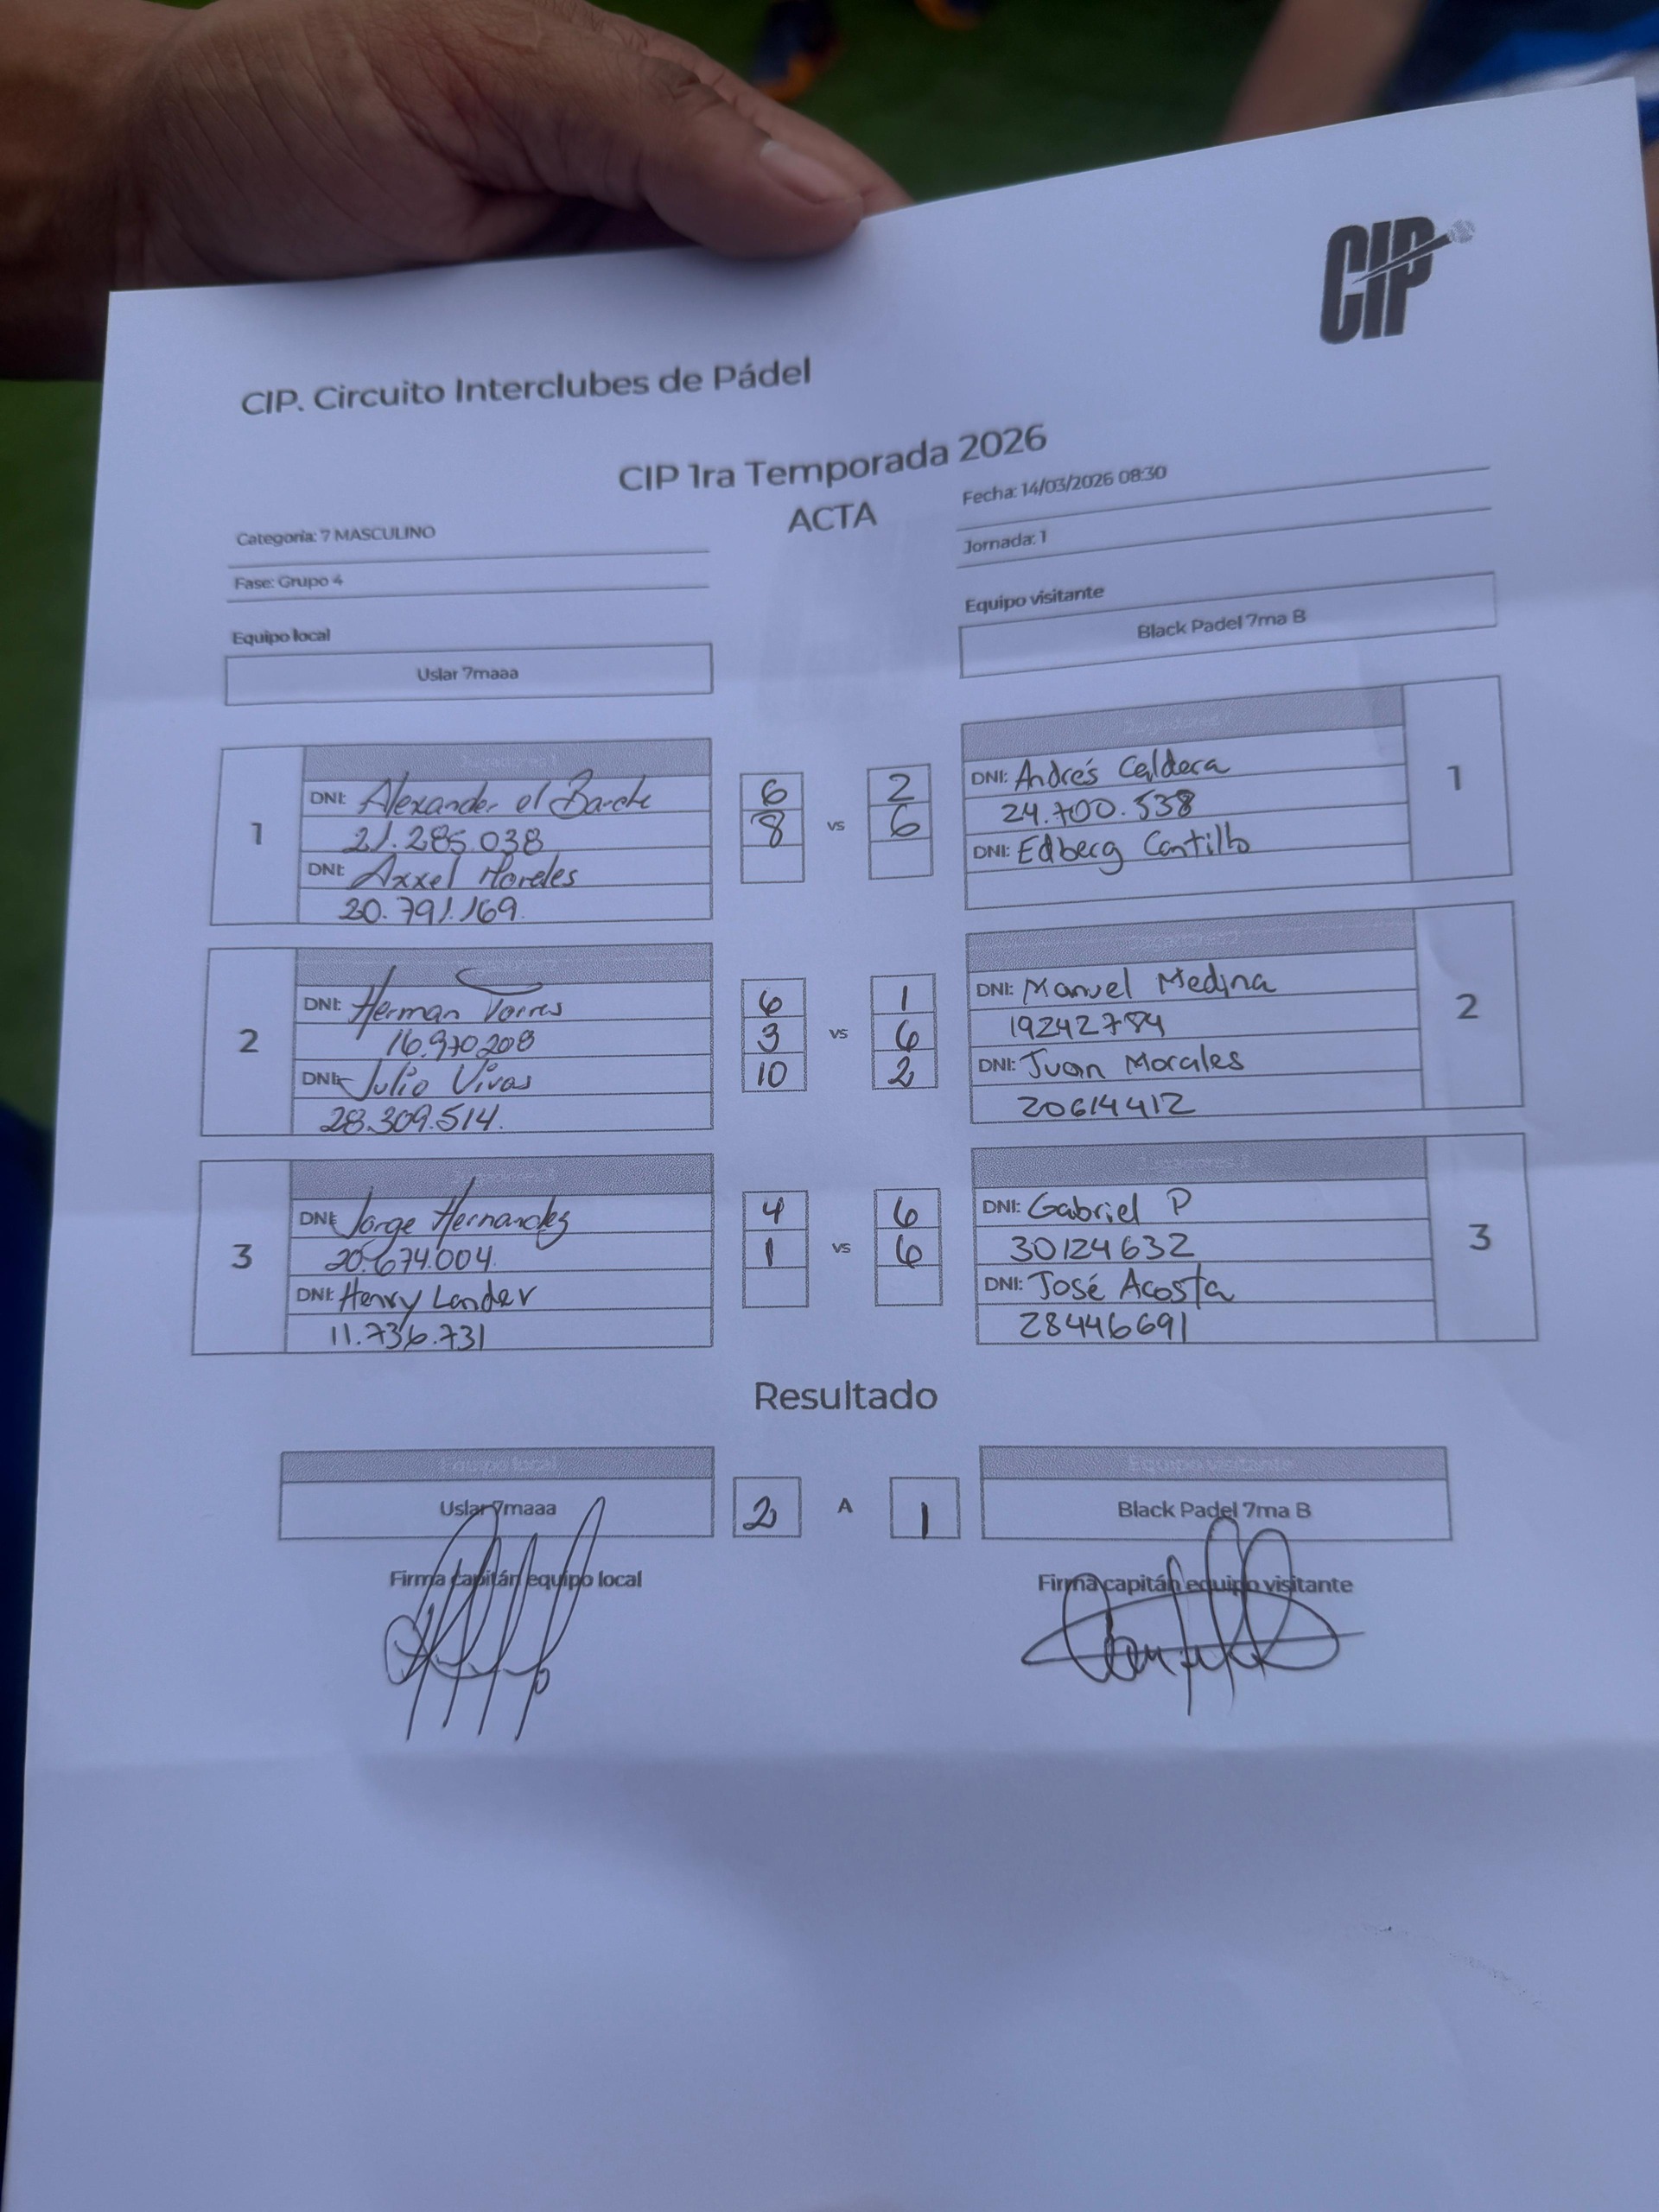 CIP
CIP. Circuito Interclubes de Pádel
CIP 1ra Temporada 2026
ACTA
Categoría: 7 MASCULINO
Fecha: 14/03/2026 08:30
Fase: Grupo 4
Jornada: 1
Equipo local
Equipo visitante
Uslar 7maaa
Black Padel 7ma B
1
Jugadores 1
DNI: Alexander el
21.285.038
DNI: Axxel Morales
20.791.169
6 vs 2
8 6
Jugadores 1
DNI: Andrés Caldera
24.700.538
DNI: Edberg Cantillo
1
2
Jugadores 2
DNI: Herman Torres
16.970.208
DNI: Julio Vivas
28.309.514.
6 1
3 vs 6
10 2
Jugadores 2
DNI: Manuel Medina
19242784
DNI: Juan Morales
20614412
2
3
Jugadores 3
DNI: Jorge Hernandez
20.674.004.
DNI: Henry Lander
11.736.731
4 6
1 vs 6
Jugadores 3
DNI: Gabriel P
30124632
DNI: José Acosta
28446691
3
Resultado
Equipo local
Equipo visitante
Uslar 7maaa
2 A 1
Black Padel 7ma B
Firma capitán equipo local
Firma capitán equipo visitante